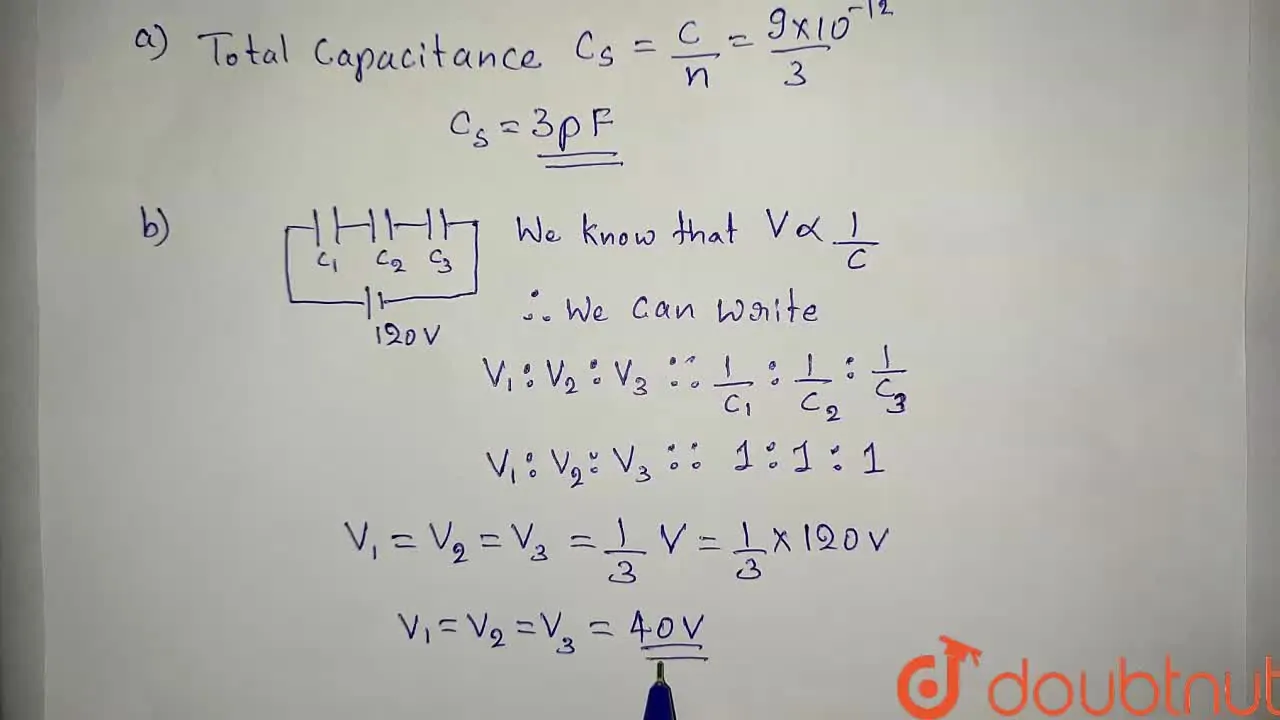 a) Total Capacitance Cs = C/n = 9×10⁻¹²/3
Cs = 3pF
b)
C₁ C₂ C₃
120V
We know that V∝ 1/C
∴ We can write
V₁ : V₂ : V₃ :: 1/C₁ : 1/C₂ : 1/C₃
V₁ : V₂ : V₃ :: 1 : 1 : 1
V₁ = V₂ = V₃ = 1/3 V = 1/3 × 120V
V₁ = V₂ = V₃ = 40V
doubtnut